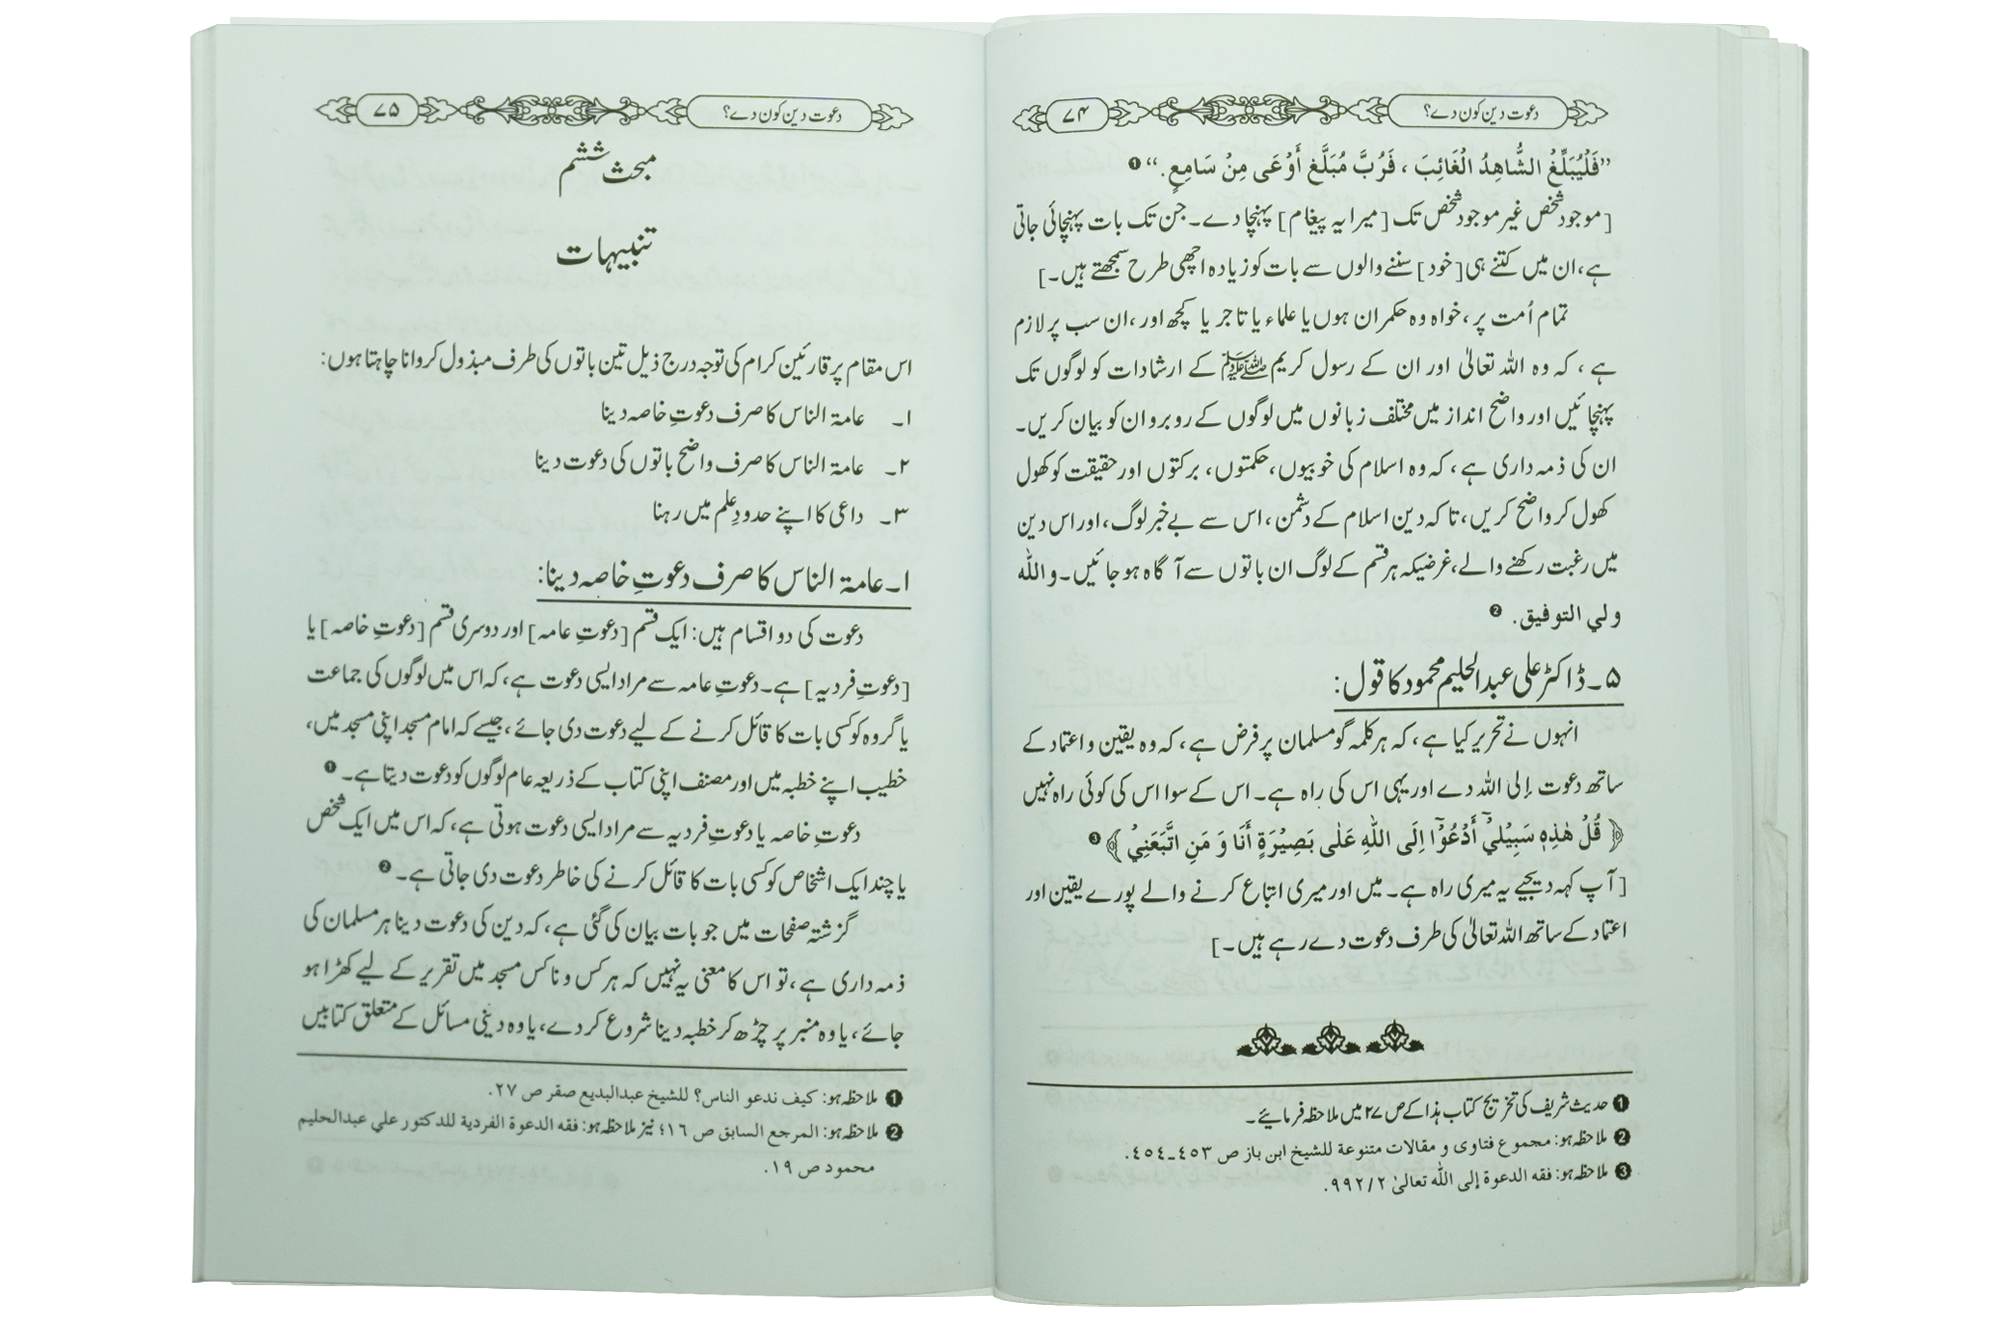 دعوت دین کون دے؟ ۷۴
”فَلْيُبَلِّغْ الشَّاهِدُ الْغَائِبَ ، فَرُبَّ مُبَلَّغٍ أَوْعَى مِنْ سَامِعٍ.“ ❶
[موجود شخص غیر موجود شخص تک [میرا یہ پیغام] پہنچا دے۔ جن تک بات پہنچائی جاتی
ہے، ان میں کتنے ہی [خود] سننے والوں سے بات کو زیادہ اچھی طرح سمجھتے ہیں۔]
تمام اُمت پر، خواہ وہ حکمران ہوں یا علماء یا تاجر یا کچھ اور، ان سب پر لازم
ہے، کہ وہ اللہ تعالیٰ اور ان کے رسول کریم ﷺ کے ارشادات کو لوگوں تک
پہنچائیں اور واضح انداز میں مختلف زبانوں میں لوگوں کے روبرو ان کو بیان کریں۔
ان کی ذمہ داری ہے، کہ وہ اسلام کی خوبیوں، حکمتوں، برکتوں اور حقیقت کو کھول
کھول کر واضح کریں، تاکہ دین اسلام کے دشمن، اس سے بے خبر لوگ، اور اس دین
میں رغبت رکھنے والے، غرضیکہ ہر قسم کے لوگ ان باتوں سے آگاہ ہو جائیں۔ واللّٰه
ولي التوفيق. ❷
۵۔ ڈاکٹر علی عبدالحلیم محمود کا قول:
انہوں نے تحریر کیا ہے، کہ ہر کلمہ گو مسلمان پر فرض ہے، کہ وہ یقین و اعتماد کے
ساتھ دعوت إلی اللہ دے اور یہی اس کی راہ ہے۔ اس کے سوا اس کی کوئی راہ نہیں
﴿ قُلْ هٰذِهٖ سَبِيْلِيْٓ أَدْعُوْٓا اِلَى اللّٰهِ عَلٰى بَصِيْرَةٍ أَنَا وَ مَنِ اتَّبَعَنِيْ ﴾ ❸
[آپ کہہ دیجیے یہ میری راہ ہے۔ میں اور میری اتباع کرنے والے پورے یقین اور
اعتماد کے ساتھ اللہ تعالیٰ کی طرف دعوت دے رہے ہیں۔]
❶ حدیث شریف کی تخریج کتاب ہذا کے ص ۲۷ میں ملاحظہ فرمائیے۔
❷ ملاحظہ ہو: مجموع فتاوى و مقالات متنوعة للشيخ ابن باز ص ٤٥٣ـ٤٥٤.
❸ ملاحظہ ہو: فقه الدعوة إلى اللّٰه تعالىٰ ٩٩٢/٢.
دعوت دین کون دے؟ ۷۵
مبحث ششم
تنبیہات
اس مقام پر قارئین کرام کی توجہ درج ذیل تین باتوں کی طرف مبذول کروانا چاہتا ہوں:
۱۔ عامة الناس کا صرف دعوتِ خاصہ دینا
۲۔ عامة الناس کا صرف واضح باتوں کی دعوت دینا
۳۔ داعی کا اپنے حدودِ علم میں رہنا
۱۔ عامة الناس کا صرف دعوتِ خاصہ دینا:
دعوت کی دو اقسام ہیں: ایک قسم [دعوتِ عامہ] اور دوسری قسم [دعوتِ خاصہ] یا
[دعوتِ فردیہ] ہے۔ دعوتِ عامہ سے مراد ایسی دعوت ہے، کہ اس میں لوگوں کی جماعت
یا گروہ کو کسی بات کا قائل کرنے کے لیے دعوت دی جائے، جیسے کہ امام مسجد اپنی مسجد میں،
خطیب اپنے خطبہ میں اور مصنف اپنی کتاب کے ذریعہ عام لوگوں کو دعوت دیتا ہے۔ ❶
دعوتِ خاصہ یا دعوتِ فردیہ سے مراد ایسی دعوت ہوتی ہے، کہ اس میں ایک شخص
یا چند ایک اشخاص کو کسی بات کا قائل کرنے کی خاطر دعوت دی جاتی ہے۔ ❷
گزشتہ صفحات میں جو بات بیان کی گئی ہے، کہ دین کی دعوت دینا ہر مسلمان کی
ذمہ داری ہے، تو اس کا معنی یہ نہیں کہ ہر کس و ناکس مسجد میں تقریر کے لیے کھڑا ہو
جائے، یا وہ منبر پر چڑھ کر خطبہ دینا شروع کر دے، یا وہ دینی مسائل کے متعلق کتابیں
❶ ملاحظہ ہو: كيف ندعو الناس؟ للشيخ عبدالبديع صقر ص ٢٧.
❷ ملاحظہ ہو: المرجع السابق ص ١٦؛ نیز ملاحظہ ہو: فقه الدعوة الفردية للدكتور علي عبدالحليم
محمود ص ١٩.